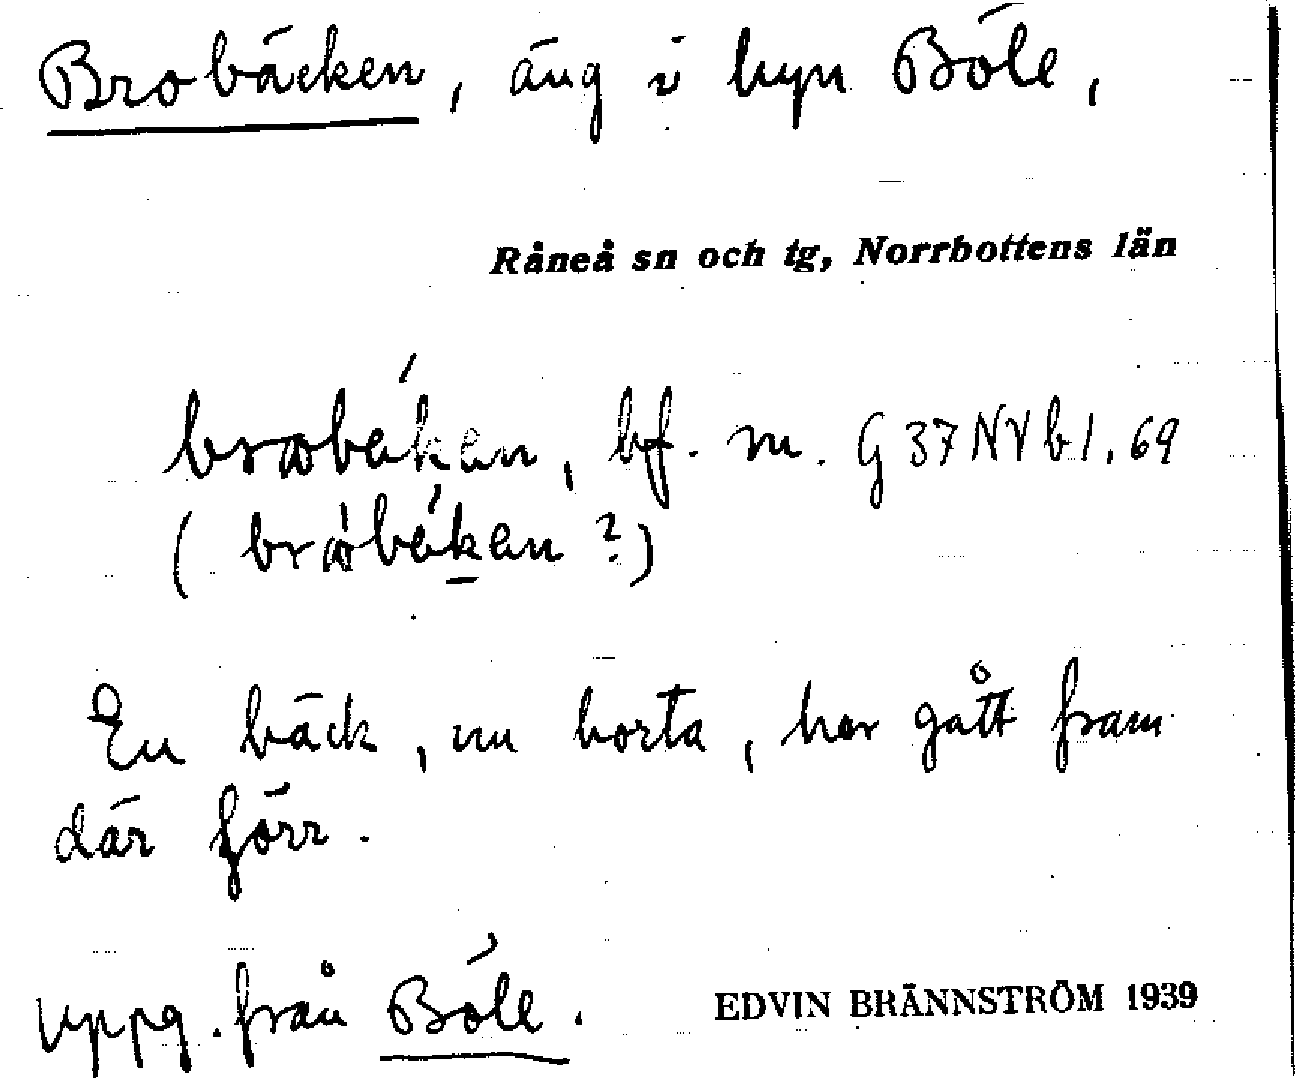 Brobäcken, äng i byn Böle,
Råneå sn och tg, Norrbottens län
bf. m. G 37 NV b 1. 69
En bäck, nu borta, har gått fram
där förr.
Uppg. från Böle.
EDVIN BRÄNNSTRÖM 1939